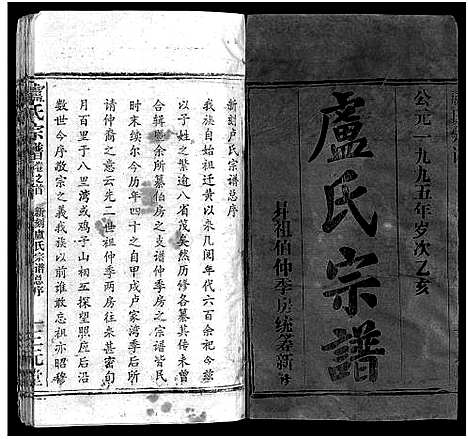 公元一九九五年岁次乙亥
盧氏宗譜
昇祖伯仲季房统纂新修
新刻卢氏宗谱总序
我族自始祖迁黄以来几阅年代六百余祀今兹
以子姓之繁逾八省茂矣然历修各纂其传未曾
合辑鉴余所纂伯房之支谱仲季房之宗谱皆民
时末续尔今历年四十之自甲戌卢家湾季后所
请仲裔之意云先二世祖仲季两房往来甚密南
月百里于八里湾或鸡子山初五探望照应后沿
数世今序故宗之义我族以前谁敢忘祖亦昭穆
盧氏宗譜
卷之首
新刻盧氏宗谱总序